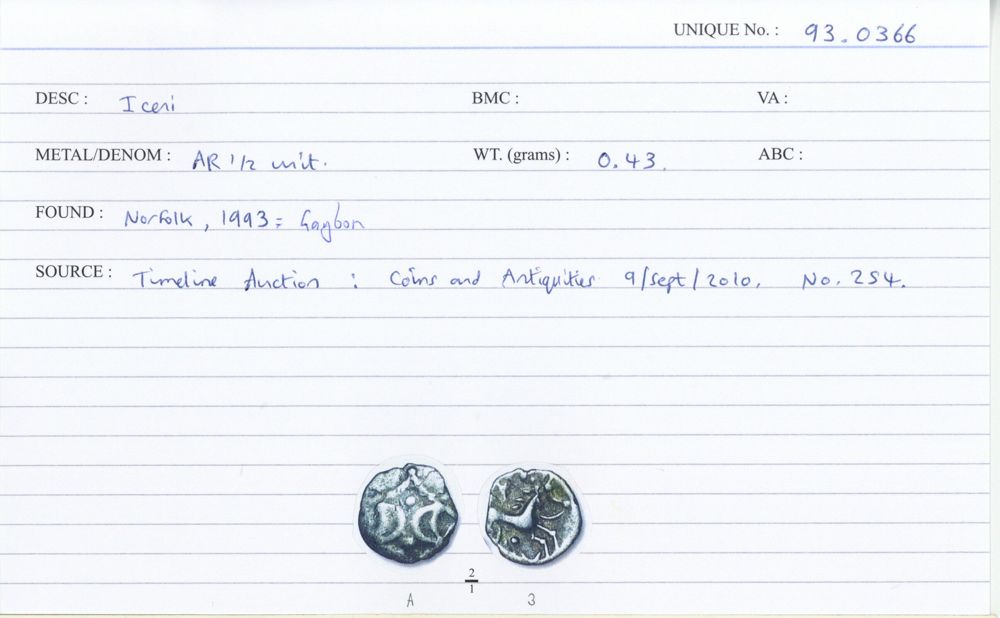 UNIQUE No. : 93.0366
DESC : Iceni BMC : VA :
METAL/DENOM : AR 1/2 unit. WT. (grams) : 0.43. ABC :
FOUND : Norfolk, 1993 = Gaybon
SOURCE : Timeline Auction : Coins and Antiquities 9/Sept/2010, No. 254.
2
1
A 3